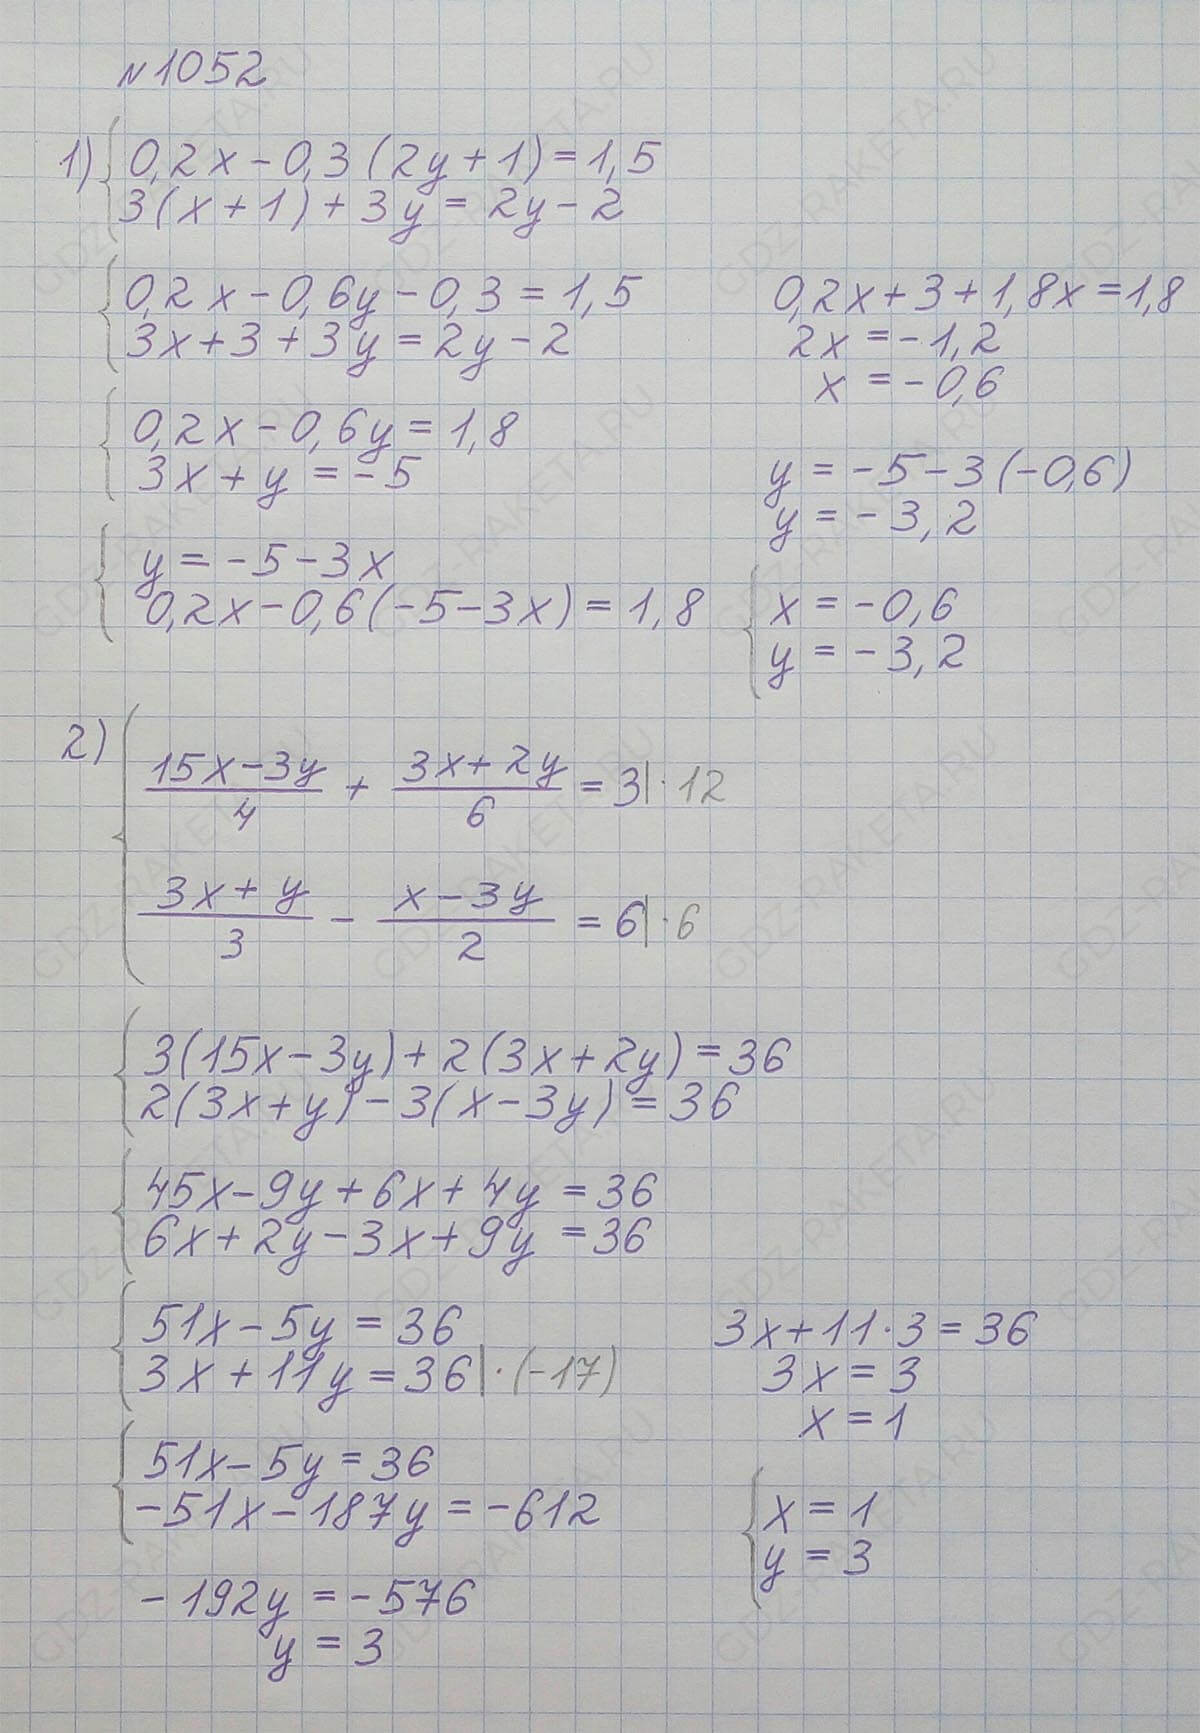 №1052
1) 0,2x - 0,3(2y + 1) = 1,5
3(x + 1) + 3y = 2y - 2
0,2x - 0,6y - 0,3 = 1,5
3x + 3 + 3y = 2y - 2
0,2x - 0,6y = 1,8
3x + y = -5
y = -5 - 3x
0,2x - 0,6(-5 - 3x) = 1,8
0,2x + 3 + 1,8x = 1,8
2x = -1,2
x = -0,6
y = -5 - 3(-0,6)
y = -3,2
x = -0,6
y = -3,2
2) (15x - 3y)/4 + (3x + 2y)/6 = 3 | · 12
(3x + y)/3 - (x - 3y)/2 = 6 | · 6
3(15x - 3y) + 2(3x + 2y) = 36
2(3x + y) - 3(x - 3y) = 36
45x - 9y + 6x + 4y = 36
6x + 2y - 3x + 9y = 36
51x - 5y = 36
3x + 11y = 36 | · (-17)
51x - 5y = 36
-51x - 187y = -612
-192y = -576
y = 3
3x + 11 · 3 = 36
3x = 3
x = 1
x = 1
y = 3
GDZ-RAKETA.RU